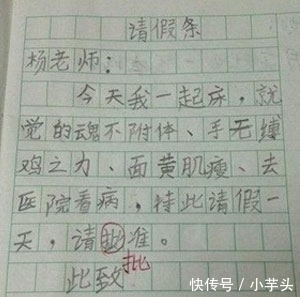 请假条
杨老师：
今天我一起床，就
觉的魂不附体、手无缚
鸡之力、面黄肌瘦、去
医院看病，特此请假一
天，请批准。
批
此致
快传号/小芋头